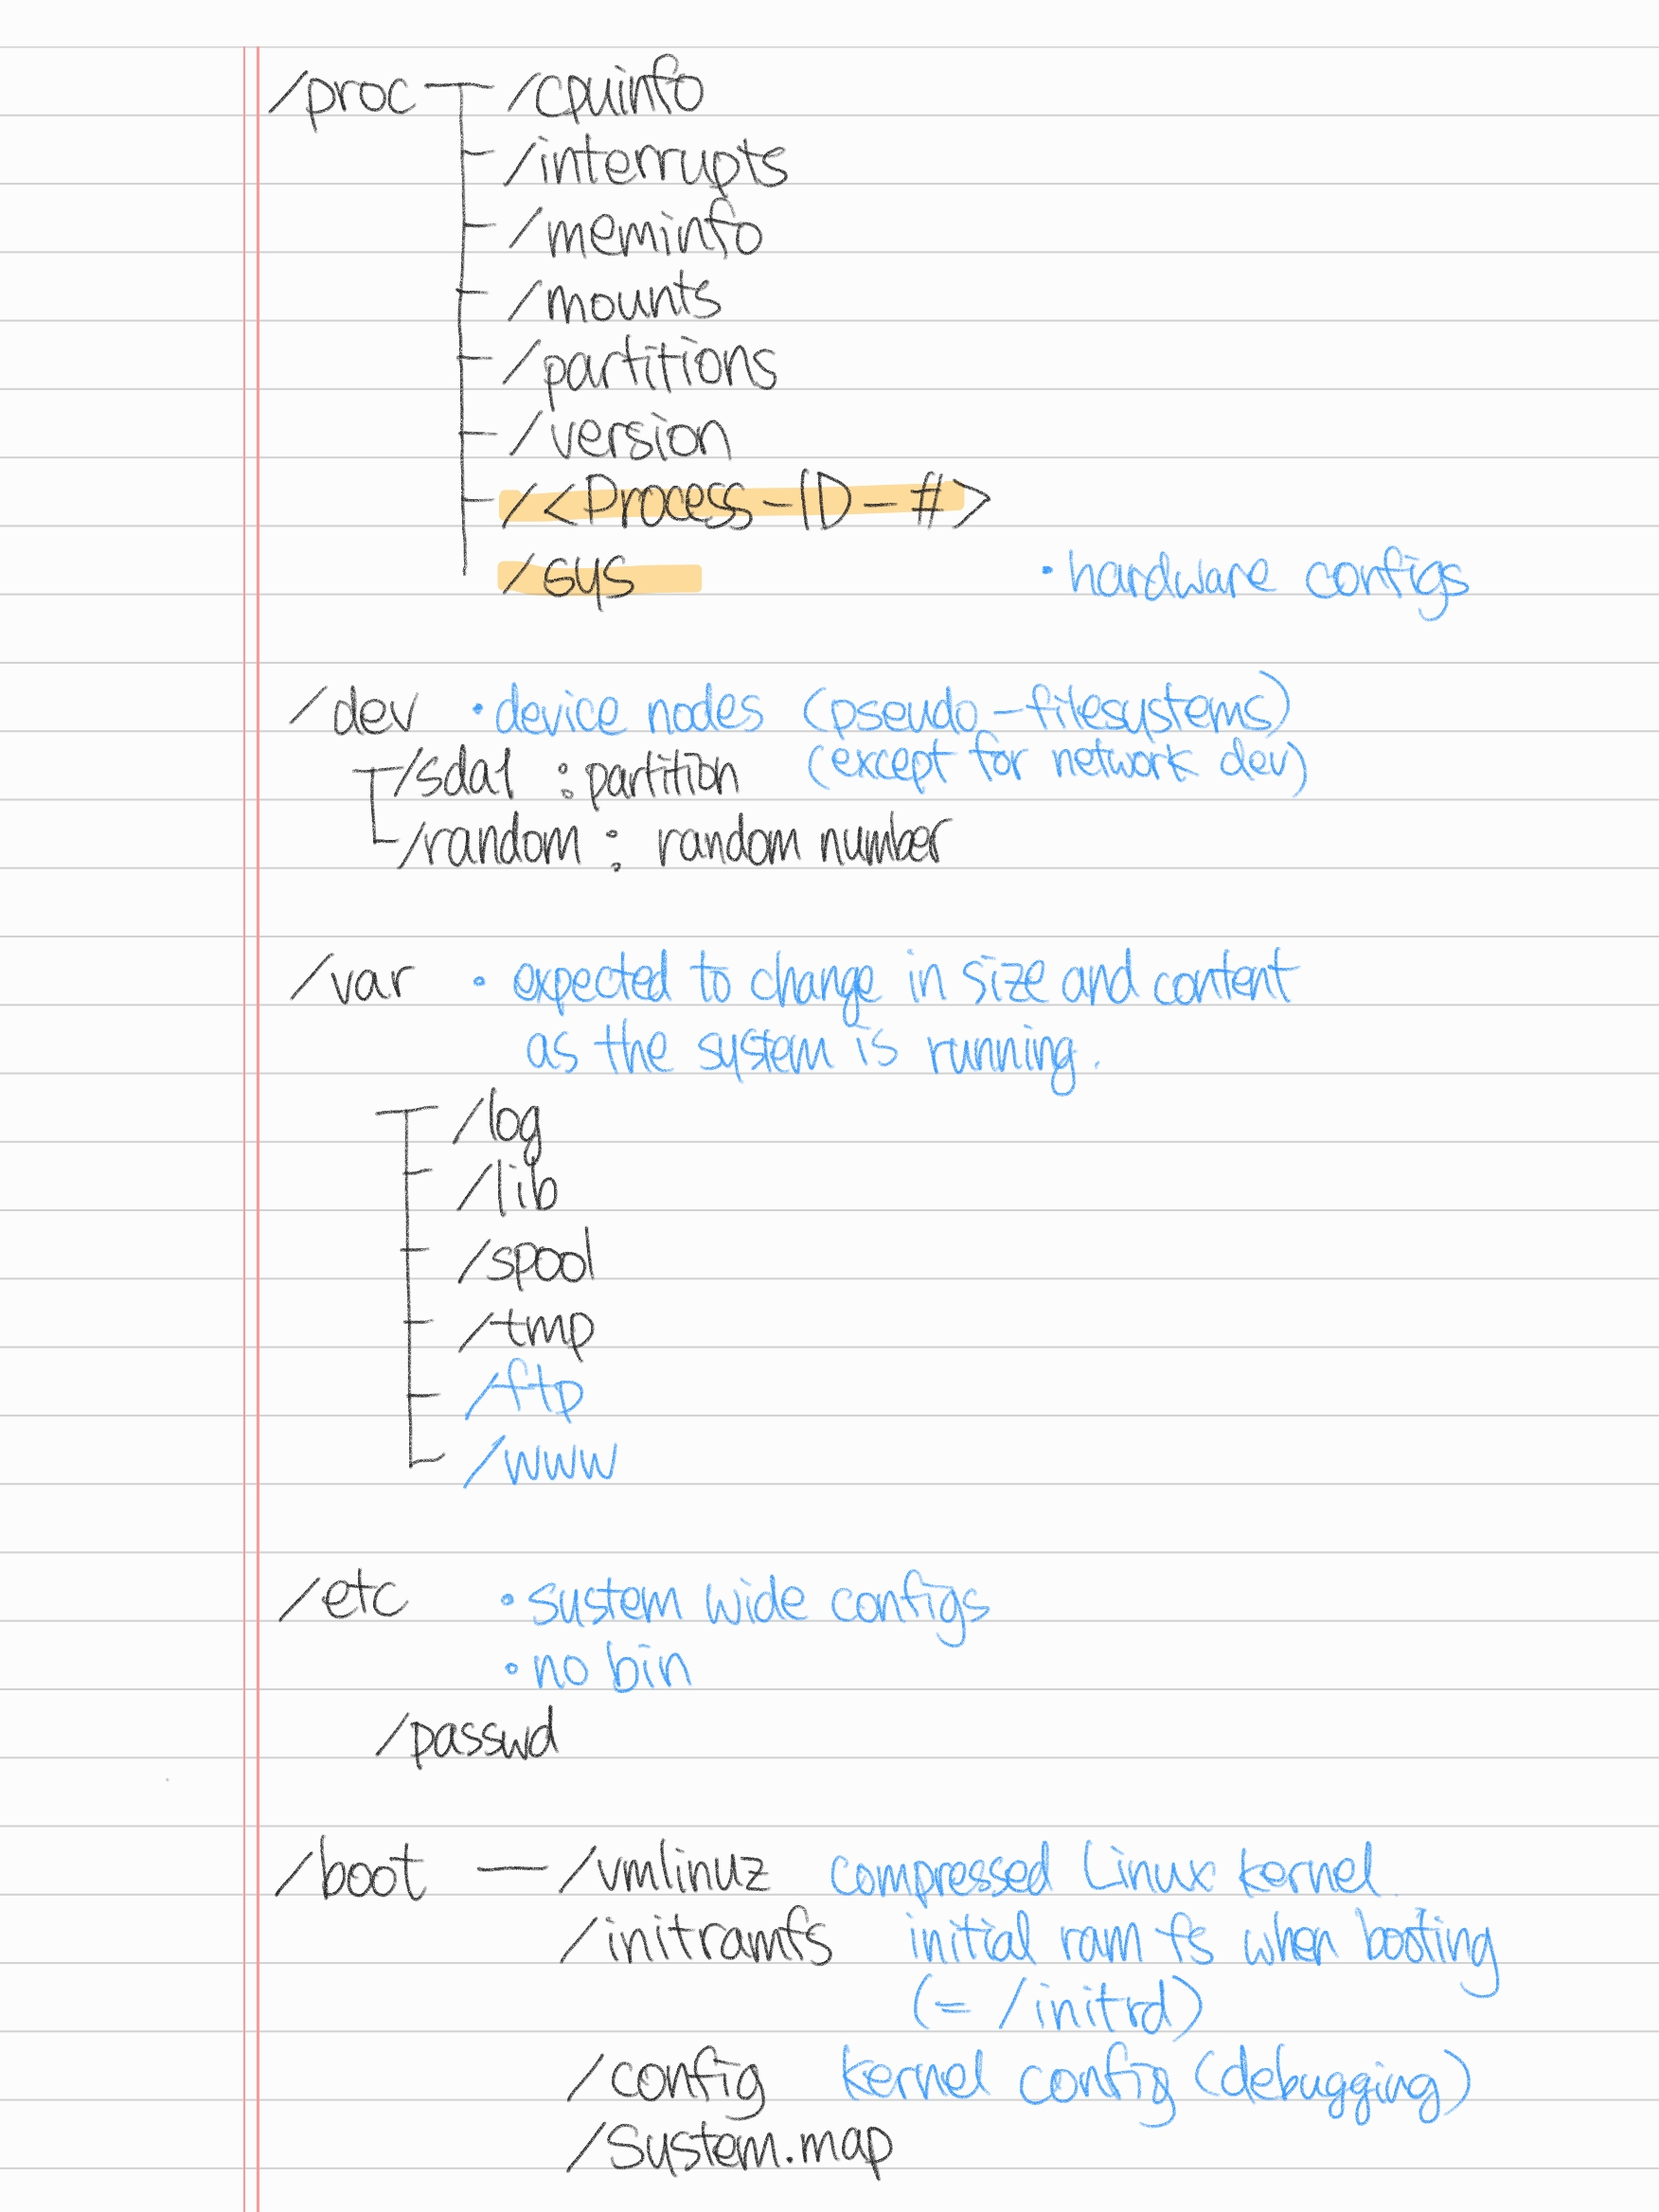 /proc /cpuinfo
/interrupts
/meminfo
/mounts
/partitions
/version
/<Process-ID-#>
/sys • hardware configs
/dev • device nodes (pseudo-filesystems)
/sda1 : partition (except for network dev)
/random : random number
/var • expected to change in size and content
as the system is running.
/log
/lib
/spool
/tmp
/ftp
/www
/etc • system wide configs
• no bin
/passwd
/boot — /vmlinuz compressed Linux kernel.
/initramfs initial ram fs when booting
(= /initrd)
/config kernel config (debugging)
/System.map